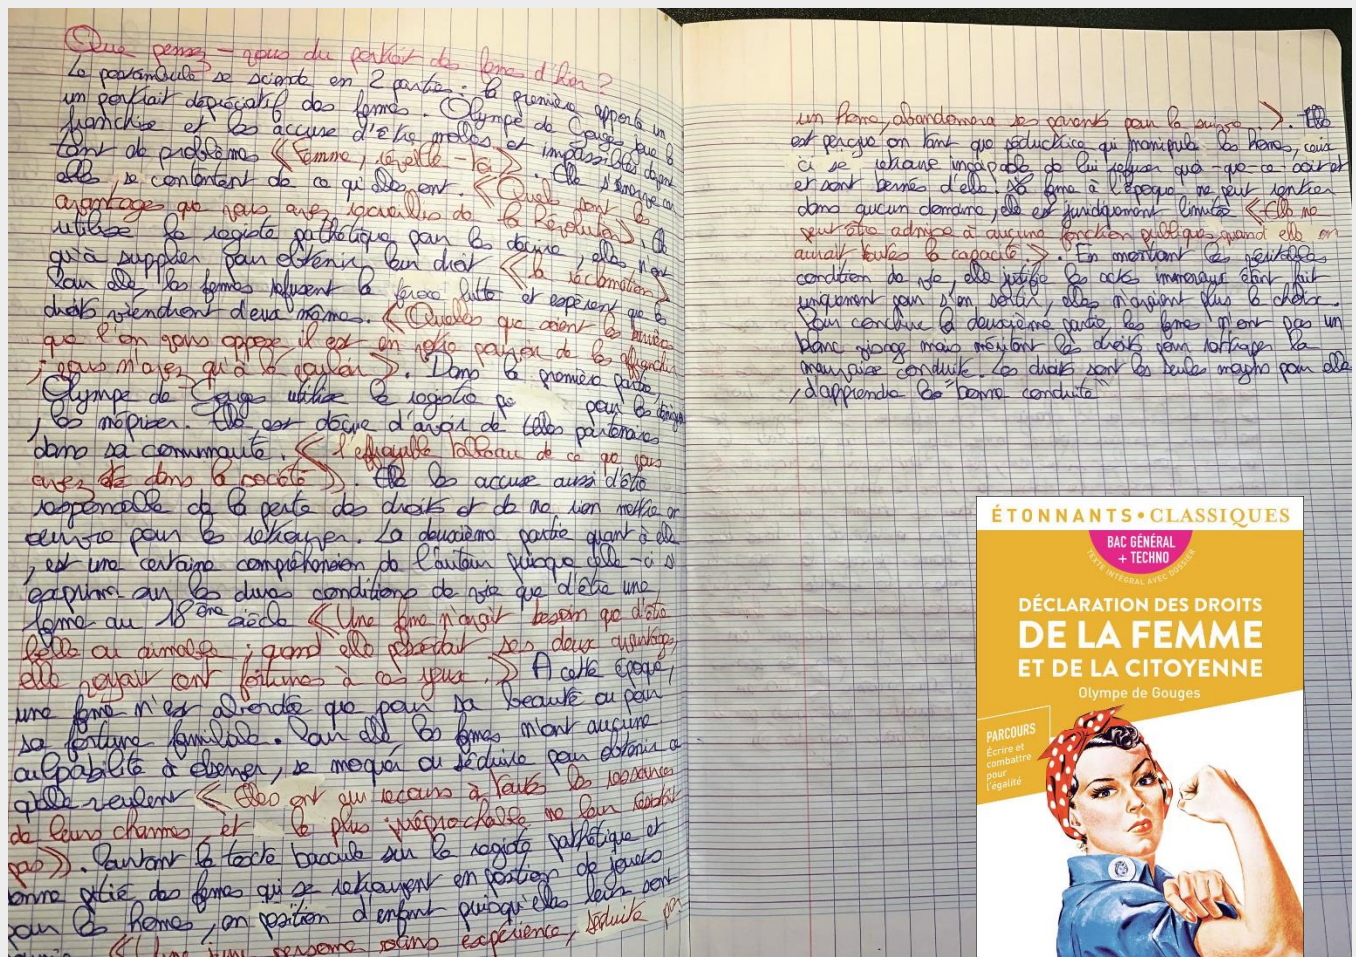 Que pensez-vous du portrait des femes d'hier ?
Le postambule se scinde en 2 parties. la première apporte un
un portrait dépréciatif des femmes. Olympe de Gouges joue la
franchise et les accuse d'être molles et impassibles devant
tant de problèmes << Femme, réveille-toi >>. Elle s'énerve car
elles se contentent de ce qu'elles ont. << Quel sont les
avantages que vous avez recueillis de la Révolution >>.
utilise le registe pathétique pour les décrire, elles n'ont
qu'à supplier pour obtenir leur droit << la réclamation >>
Pour elle, les femmes refusent la lutte et espèrent que les
droits viendront d'eux mêmes. << Quelles que soient les barrières
que l'on vous oppose il est en votre pouvoir de les affranchir
; vous n'avez qu'à le vouloir >>. Dans la première partie,
Olympe de Gouges utilise le registe pour les
, les mépriser. Elle est déçue d'avoir de telles partenaires
dans sa communauté. << l'effroyable tableau de ce que vous
avez été dans la société >>. Elle les accuse aussi d'être
responsable de la perte des droits et de ne rien mettre en
oeuvre pour les retrouver. La deuxième partie quant à elle
, est une certaine compréhension de l'auteur puisque celle-ci s'
exprime sur les dures conditions de vie que d'être une
feme au 18ème siècle << Une feme n'avait besoin que d'être
belle ou aimable ; quand elle possédait ses deux avantages,
elle voyait cent fortunes à ses yeux. >> A cette époque,
une feme n'est abordée que pour sa beauté ou pour
sa fortune familiale. Pour elle les femes n'ont aucune
culpabilité à se moquer ou séduire pour obtenir ce
qu'elle veulent << Elles ont eu recours à toutes les ressources
de leurs charmes, et le plus irréprochable ne leur résistait
pas >>. Pourtant le texte bascule sur le registe pathétique et
donne pitié des femes qui se retrouvent en position de jouets
pour les homes, en position d'enfant puisqu'elles leurs sont
<< Une jeune personne sans expérience, séduite par
un home, abandonnera ses parents pour le suivre >>. Elle
est perçue en tant que séductrice qui manipule les homes, ceux
ci se retrouve incapable de lui refuser quoi-que-ce soit et
et sont bernés d'elle. La feme à l'époque ne peut rentrer
dans aucun domaine, elle est juridiquement limitée << Elle ne
peut être admise à aucune fonction publique quand elle en
aurait toutes la capacité. >>. En montrant les véritables
condition de vie, elle justifie les acts immoraux étant fait
uniquement pour s'en sortir, elles n'avaient plus le choix.
Pour conclure la deuxième partie, les femes n'ont pas un
blanc visage mais méritent les droits pour rattraper la
mauvaise conduite. Les droits sont les seules moyens pour elle
, d'apprendre la "bonne conduite"
ÉTONNANTS • CLASSIQUES
BAC GÉNÉRAL
+ TECHNO
TEXTE INTÉGRAL AVEC DOSSIER
DÉCLARATION DES DROITS
DE LA FEMME
ET DE LA CITOYENNE
Olympe de Gouges
PARCOURS
Écrire et
combattre
pour
l'égalité